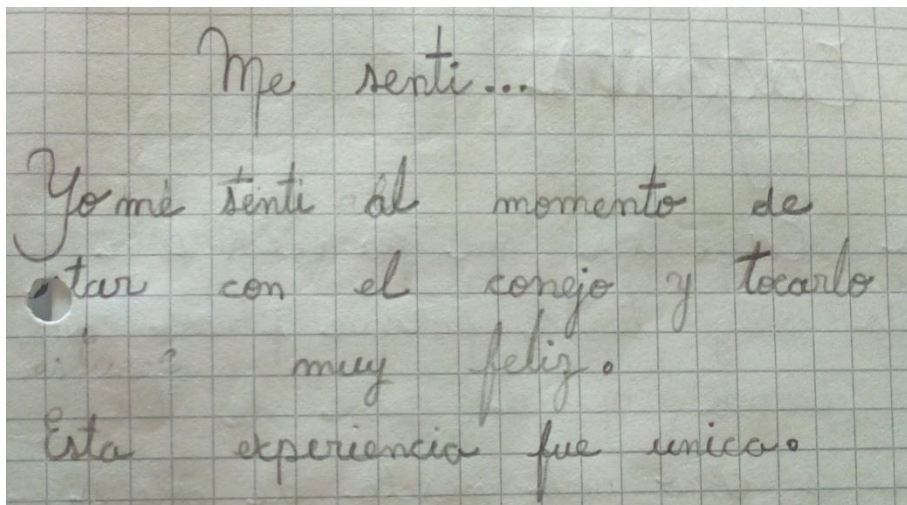 Me senti...
Yo me senti al momento de
tar con el conejo y tocarlo
muy feliz.
Esta experiencia fue unica.